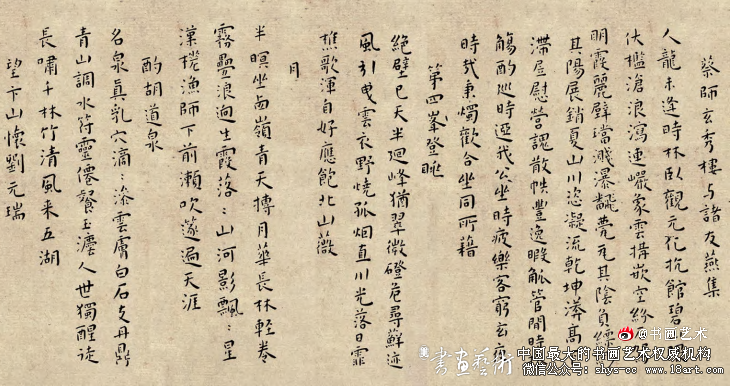 蔡師玄秀樓与諸友燕集
人龍未逢時林臥觀元化抗館碧
伏檻滄浪瀉連巖蒙雲構嵌空紛
明霞麗壁璫濺瀑飜甍瓦其陰負
其陽展銷夏山川恣凝流乾坤溱高
滯屋慰營魂散帙豊逸暇觚管閒時
觴酌巡時迓我公坐時疲樂客窮玄
時我秉燭歡合坐同所藉
第四峯登眺
絕壁已天半迴峰猶翠微磴危尋蘚迹
風引曳雲衣野燒孤烟直川光落日霏
樵歌渾自好應飽北山薇
月
半暝坐西嶺青天摶月華長林輕卷
霧疊浪迥生霞落〻山河影飄〻星
漢槎漁師下前瀨吹篴過天涯
酌胡道泉
名泉真乳穴滴〻滲雲膚白石支丹鼎
青山調水符靈僊餐玉瀣人世獨醒徒
長嘯千林竹清風来五湖
望卞山懷劉元瑞
書畫藝術
@书画艺术
中国最大的书画艺术权威机构
微信公众号：shys-cc www.18art.com